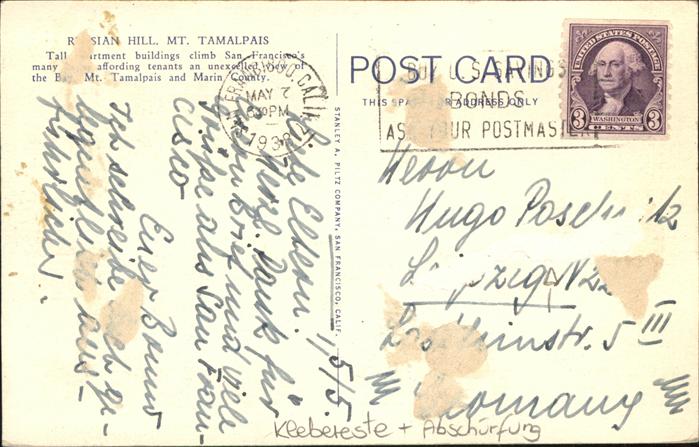 RUSSIAN HILL, MT. TAMALPAIS
Tall apartment buildings climb San Francisco's
many affording tenants an unexcelled view of
the Bay, Mt. Tamalpais and Marin County.
POST CARD
THIS SPACE FOR ADDRESS ONLY
STANLEY A. PILTZ COMPANY, SAN FRANCISCO, CALIF.
CALIF.
MAY 7
630PM
1938
BUY U.S. SAVINGS
BONDS
ASK YOUR POSTMASTER
UNITED STATES POSTAGE
3 WASHINGTON 3
CENTS
1/5/5.
Liebe Eltern!
Herzl. Dank für
und viele
Grüße aus San Fran-
cisco
Euer Bruno
Ich schreibe Euch
aus-
führlicher.
Herrn
Hugo
Leipzig N22
5 III
Germany
Klebereste + Abschürfung